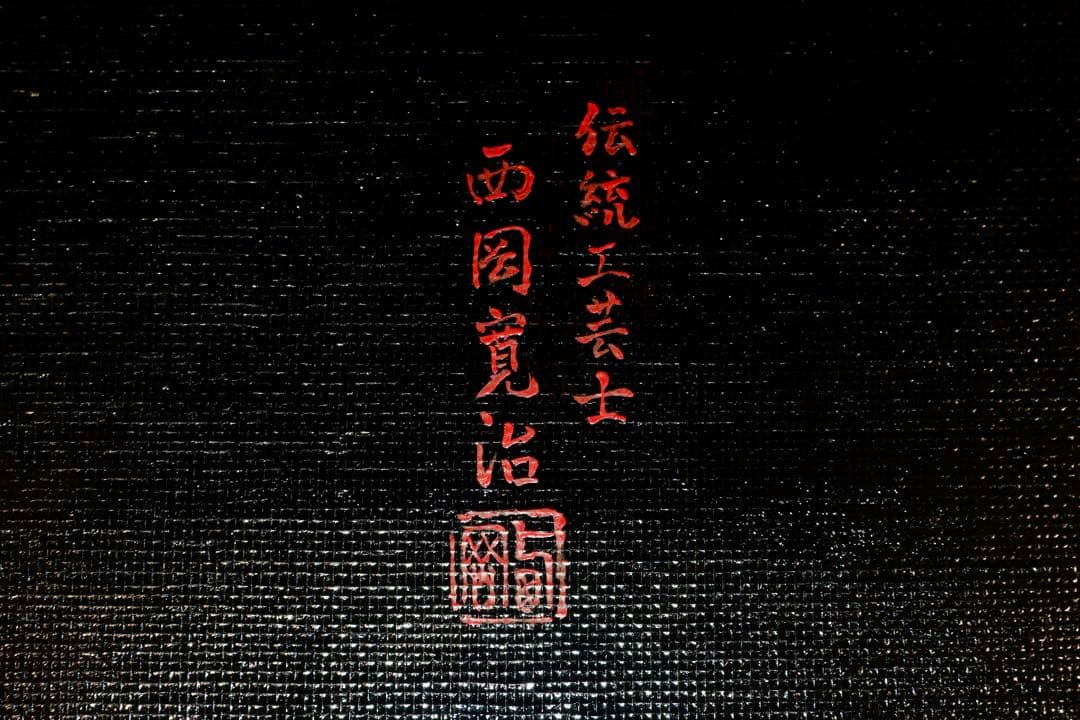 伝統工芸士
西岡寛治